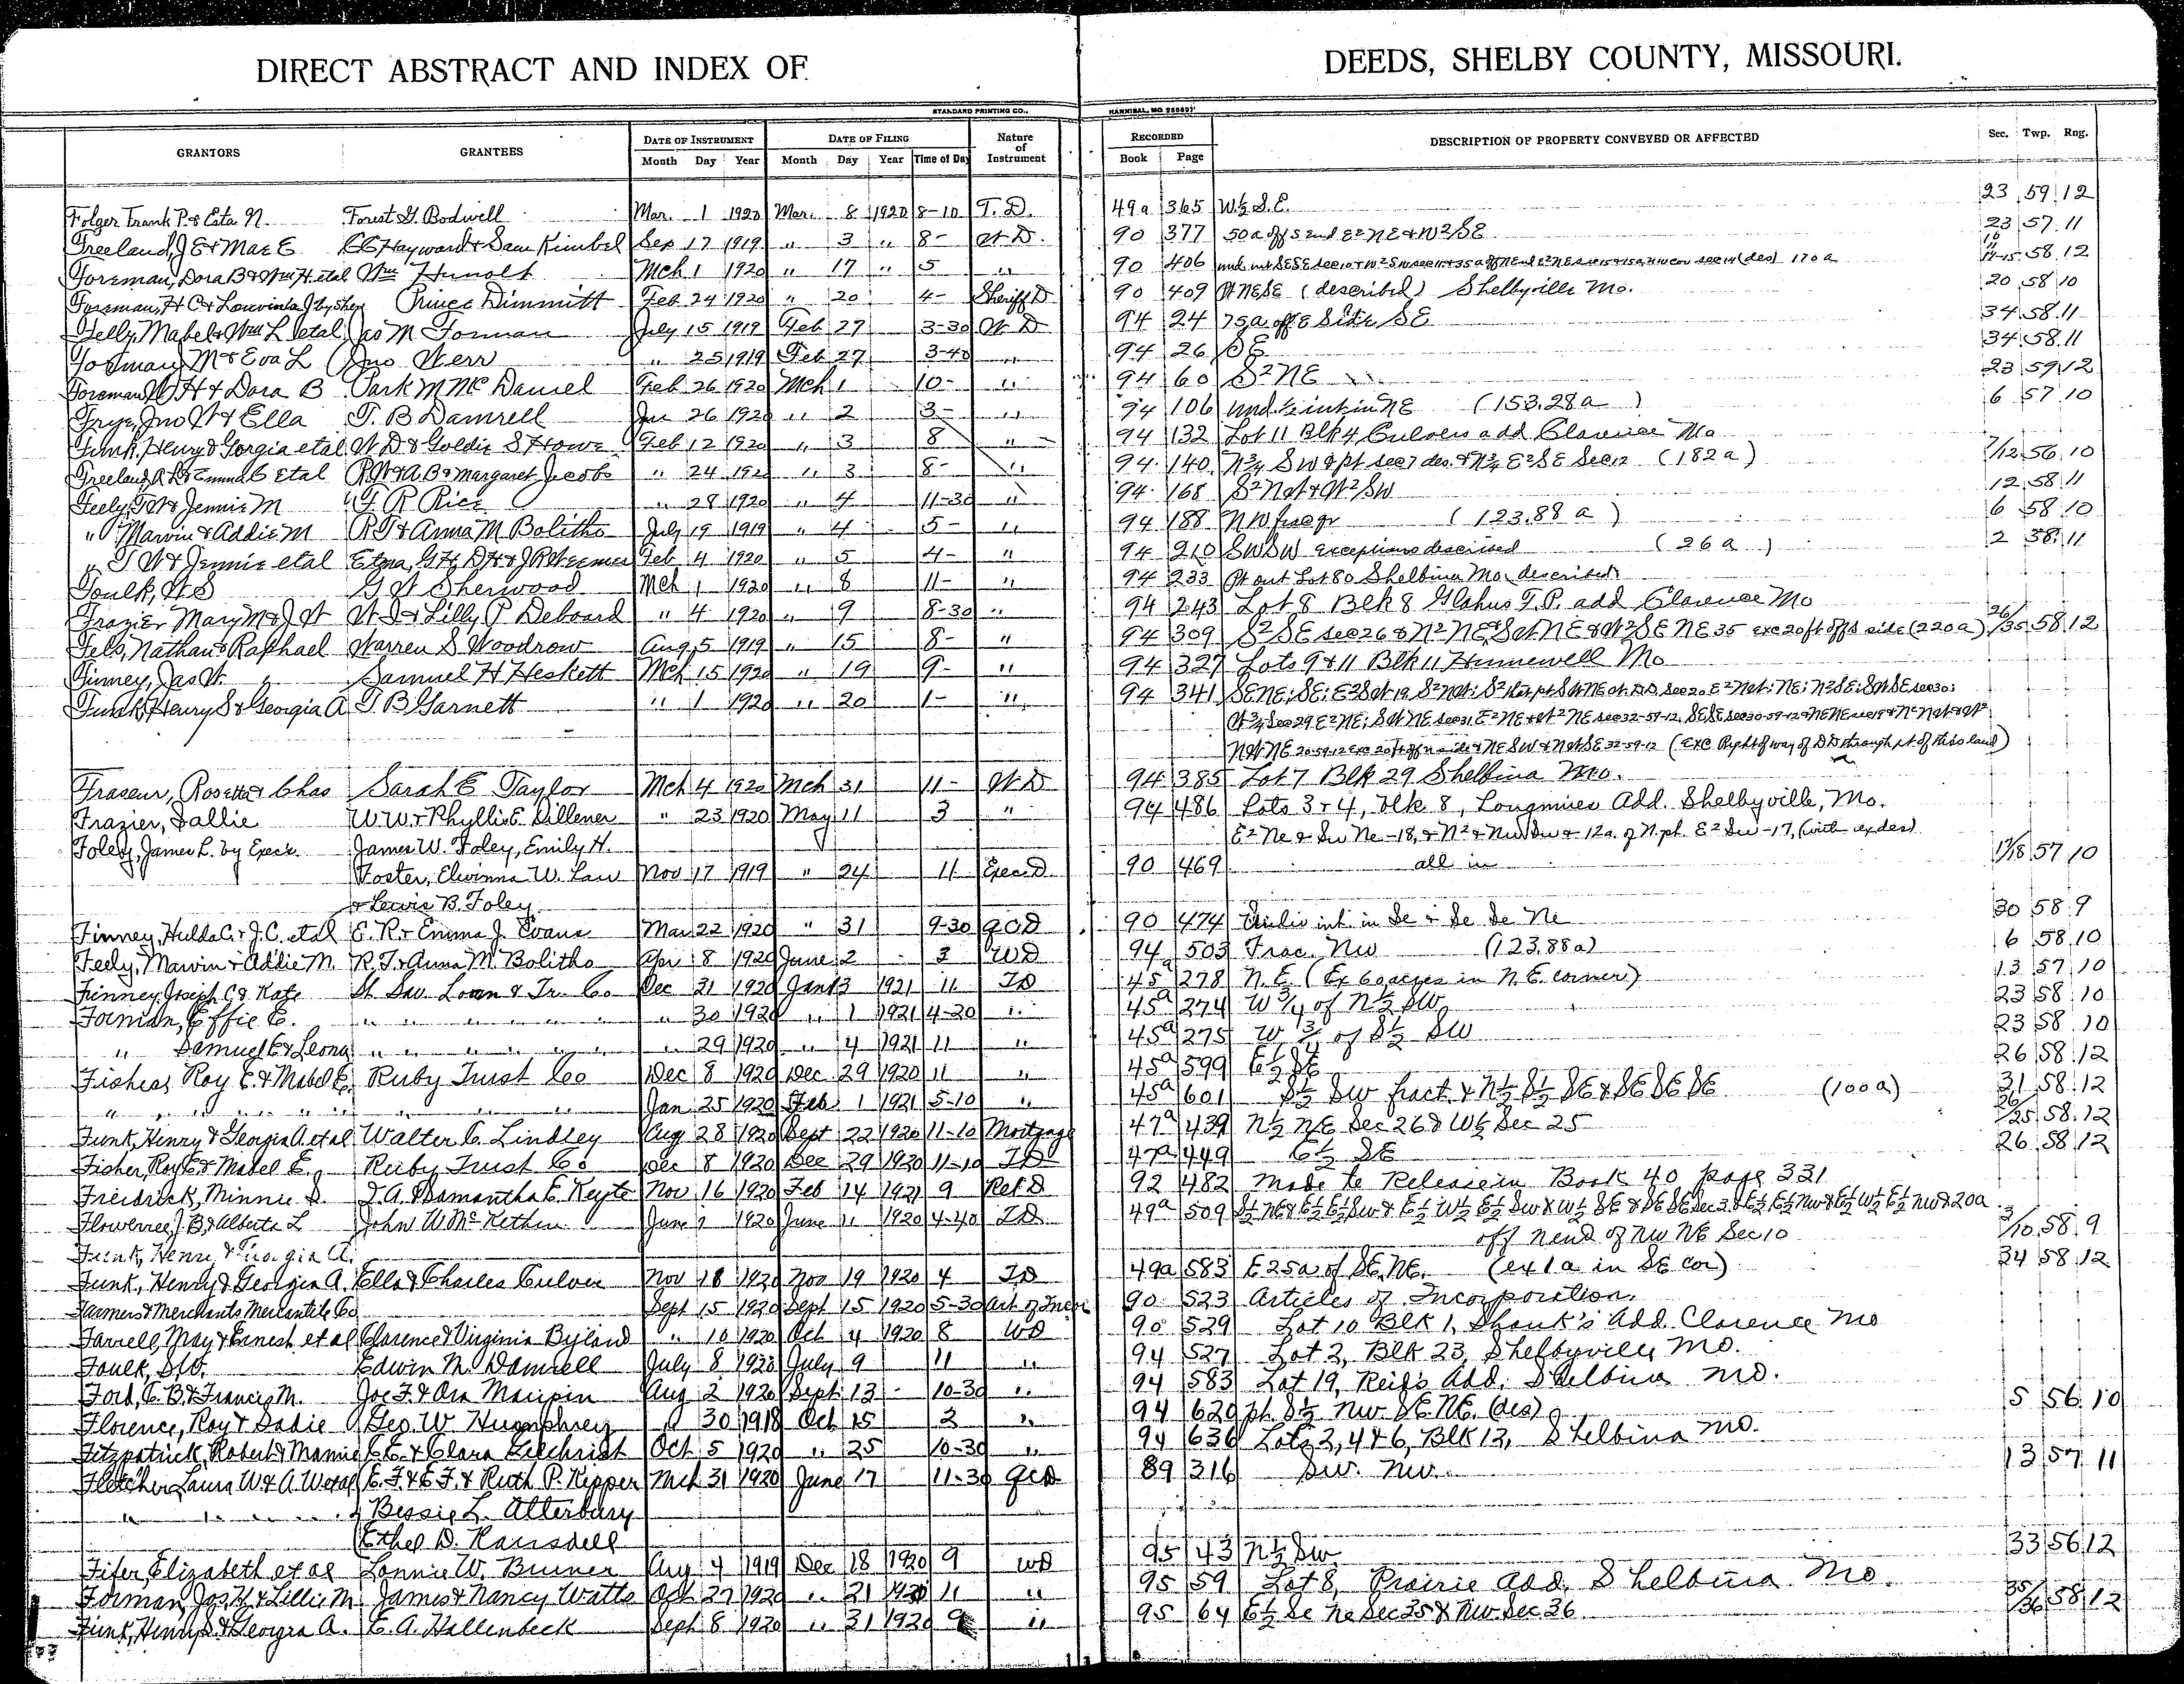 DIRECT ABSTRACT AND INDEX OF DEEDS, SHELBY COUNTY, MISSOURI.
STANDARD PRINTING CO., HANNIBAL, MO.
GRANTORS GRANTEES DATE OF INSTRUMENT DATE OF FILING Nature of Instrument RECORDED DESCRIPTION OF PROPERTY CONVEYED OR AFFECTED Sec. Twp. Rng.
Month Day Year Month Day Year Time of Day Book Page
Folger Frank P. & Esta N. Forest G. Bodwell Mar. 1 1920 Mar. 8 1920 8-10 T. D. 49a 365 W½ S.E. 23 59 12
Freeland, J E & Mae E CC Hayward & Sam Kimbel Sep 17 1919 " 3 " 8- W D. 90 377 50a off S end E²NE & W²SE 23 57 11
Foreman, Dora B & Wm H. etal Wm Hunolt Mch 1 1920 " 17 " 5 " 90 406 170 a 58 12
Foreman, H C & Louvinla J by Shff Prince Dimmitt Feb 24 1920 " 20 4- Sheriff D 90 409 Pt NESE (described) Shelbyville Mo. 20 58 10
Felly, Mabel & Wm L etal Jas M Forman July 15 1919 Feb 27 3-30 W D 94 24 75a off E Side SE 34 58 11
Forman, J M & Eva L Jno Kerr " 25 1919 Feb 27 3-40 " 94 26 SE 34 58 11
Foreman W H & Dora B Park M McDaniel Feb 26 1920 Mch 1 10- " 94 60 S²NE 23 59 12
Frye, Jno W & Ella T. B Damrell Jan 26 1920 " 2 3- " 94 106 und. ½ int in NE (153.28a) 6 57 10
Funk, Henry & Gorgia etal W D & Goldie S Howe Feb 12 1920 " 3 8 " 94 132 Lot 11 Blk 4 Culvers add Clarence Mo
Freeland, A L & Emma C Etal R W & A. B & Margaret Jacobs " 24 192 " 3 8- " 94 140 N¾ SW & pt sec 7 des. & N¾ E²SE Sec 12 (182a) 7/12 56 10
Feely, T W & Jennie M G R Rice " 28 1920 " 4 11-30 " 94 168 S²NW & W²SW 12 58 11
" Marvin & Addie M R T & Anna M Bolitho July 19 1919 " 4 5- " 94 188 NW frac qr (123.88 a) 6 58 10
" T W & Jennie etal Etna, G H, D H & J R Feb 4 1920 " 5 4- " 94 210 SWSW exceptions described (26 a) 2 58 11
Foulk, W S G W Sherwood Mch 1 1920 " 8 11- " 94 233 Pt out Lot 80 Shelbina Mo. described
Frazier Mary M & J W W I & Lilly P Deboard " 4 1920 " 9 8-30 " 94 243 Lot 8 Blk 8 Glahus T. P. add Clarence Mo
Fels, Nathan & Raphael Warren S Woodrow Aug 5 1919 " 15 8- " 94 309 S²SE sec 26 & N²NE & SWNE & W²SE NE 35 exc 20ft off S side (220a) 26/35 58 12
Finney, Jas W. Samuel H Heskett Mch 15 1920 " 19 9- " 94 327 Lots 9 & 11 Blk 11 Hunnewell Mo
Funk, Henry S & Georgia A T B Garnett " 1 1920 " 20 1- " 94 341 SENE; SE; E²SW 19, S²NW; Sec 20 E²NW; NE; N²SE; SWSE sec 30;
W¾ Sec 29 E²NE; SWNE sec 31, E²NE & W²NE sec 32-59-12, SESE sec 30-59-12
NWNE 20-59-12 exc 20ft off N side & NESW & NWSE 32-59-12 (exc Right of way of DD through pt. of this land)
Fraseur, Rosetta & Chas Sarah E Taylor Mch 4 1920 Mch 31 11- W D 94 385 Lot 7 Blk 29 Shelbina Mo.
Frazier, Sallie W.W. & Phyllis E. Dillener " 23 1920 May 11 3 " 94 486 Lots 3 & 4, blk 8, Longmires Add. Shelbyville, Mo.
Foley, James L. by Exec'r James W. Foley, Emily H. E² Ne & Sw Ne -18, & N² & Nw Sw & 12a. of N. pt. E² Sw -17, (with ex des)
Foster, Elvinna W. Law Nov 17 1919 " 24 11 Exec. D. 90 469 all in 17/18 57 10
& Lewis B. Foley
Finney, Hulda C. & J. C. etal E. R. & Emma J. Evans Mar 22 1920 " 31 9-30 QCD 90 474 int. in Se & Se Se Ne 30 58 9
Feely, Marvin & Addie M. R. T. & Anna M. Bolitho Apr 8 1920 June 2 3 WD 94 503 Frac. Nw (123.88a) 6 58 10
Finney, Joseph C & Kate St Sav. Loan & Tr. Co Dec 31 1920 Jan 13 1921 11 TD 45a 278 N. E. (Ex 60 acres in N. E. corner) 13 57 10
Forman, Effie E. " " " " " " 30 1920 " 1 1921 4-20 " 45a 274 W ¾ of N½ SW 23 58 10
" Samuel E & Leona " " " " " " 29 1920 " 4 1921 11 " 45a 275 W ¾ of S½ SW 23 58 10
Fisher, Roy E. & Mabel E. Ruby Trust Co Dec 8 1920 Dec 29 1920 11 " 45a 599 E½ SE 26 58 12
" " " " " " " Jan 25 1920 Feb 1 1921 5-10 " 45a 601 S½ SW fract & N½ S½ SE & SE SE SE (100a) 31 58 12
Funk, Henry & Georgia A. etal Walter C. Lindley Aug 28 1920 Sept 22 1920 11-10 Mortgage 47a 439 N½ NE Sec 26 & W½ Sec 25 26/25 58 12
Fisher, Roy E & Mabel E. Ruby Trust Co Dec 8 1920 Dec 29 1920 11-10 TD 47a 449 E½ SE 26 58 12
Freidrick, Minnie S. J. A. & Samantha E. Keyte Nov 16 1920 Feb 14 1921 9 Rel D 92 482 Made to Release in Book 40 page 331
Flowerree, J. B. & Alberta L John W. McKethen June 7 1920 June 11 1920 4-40 TD 49a 509 S½ NE & E½ E½ SW & E½ W½ E½ SW & W½ SE & SE SE Sec 3 & E½ E½ NW & E½ W½ E½ NW & 20a
off N end of NW NE Sec 10 3/10 58 9
Funk, Henry & Georgia A.
Funk, Henry & Georgia A. Ella & Charles Culver Nov 18 1920 Nov 19 1920 4 TD 49a 583 E 25a of SE. NE. (ex 1a in SE cor) 34 58 12
Farmers & Merchants Mercantile Co Sept 15 1920 Sept 15 1920 5-30 Art of Incor 90 523 Articles of Incorporation.
Farrell, May & Ernest et al Clarence & Virginia Byland " 10 1920 Oct 4 1920 8 WD 90 529 Lot 10 Blk 1, Shank's Add. Clarence Mo
Faulk, S. W. Edwin M. Damrell July 8 1920 July 9 11 " 94 527 Lot 2, Blk 23, Shelbyville Mo.
Ford, C. B. & Francis M. Joe F. & Ora Maupin Aug 2 1920 Sept 13 10-30 " 94 583 Lot 19, Reids Add. Shelbina Mo.
Florence, Roy & Sadie Geo. W. Humphrey " 30 1918 Oct 15 2 " 94 620 pt. S½ NW. SE NE. (des) 5 56 10
Fitzpatrick, Robert & Mamie C. E. & Clara Gilchrist Oct 5 1920 " 25 10-30 " 94 636 Lots 2, 4 & 6, Blk 13, Shelbina Mo.
Fletcher, Laura W. & A. W. etal E. F. & E. F. & Ruth P. Kepper Mch 31 1920 June 17 11-30 QCD 89 316 SW. NW. 13 57 11
" " " " Bessie L. Atterbury
Ethel D. Ransdell
Fifer, Elizabeth et al Lonnie W. Buner Aug 4 1919 Dec 18 1920 9 WD 95 43 N½ SW 33 56 12
Forman, Jos. H. & Lillie M. James & Nancy Watts Oct 27 1920 " 21 1920 11 " 95 59 Lot 8, Prairie Add, Shelbina Mo.
Funk, Henry S. & Georgia A. C. A. Hallenbeck Sept 8 1920 " 31 1920 9 " 95 64 E½ Se Ne Sec 35 & NW Sec 36 35/36 58 12